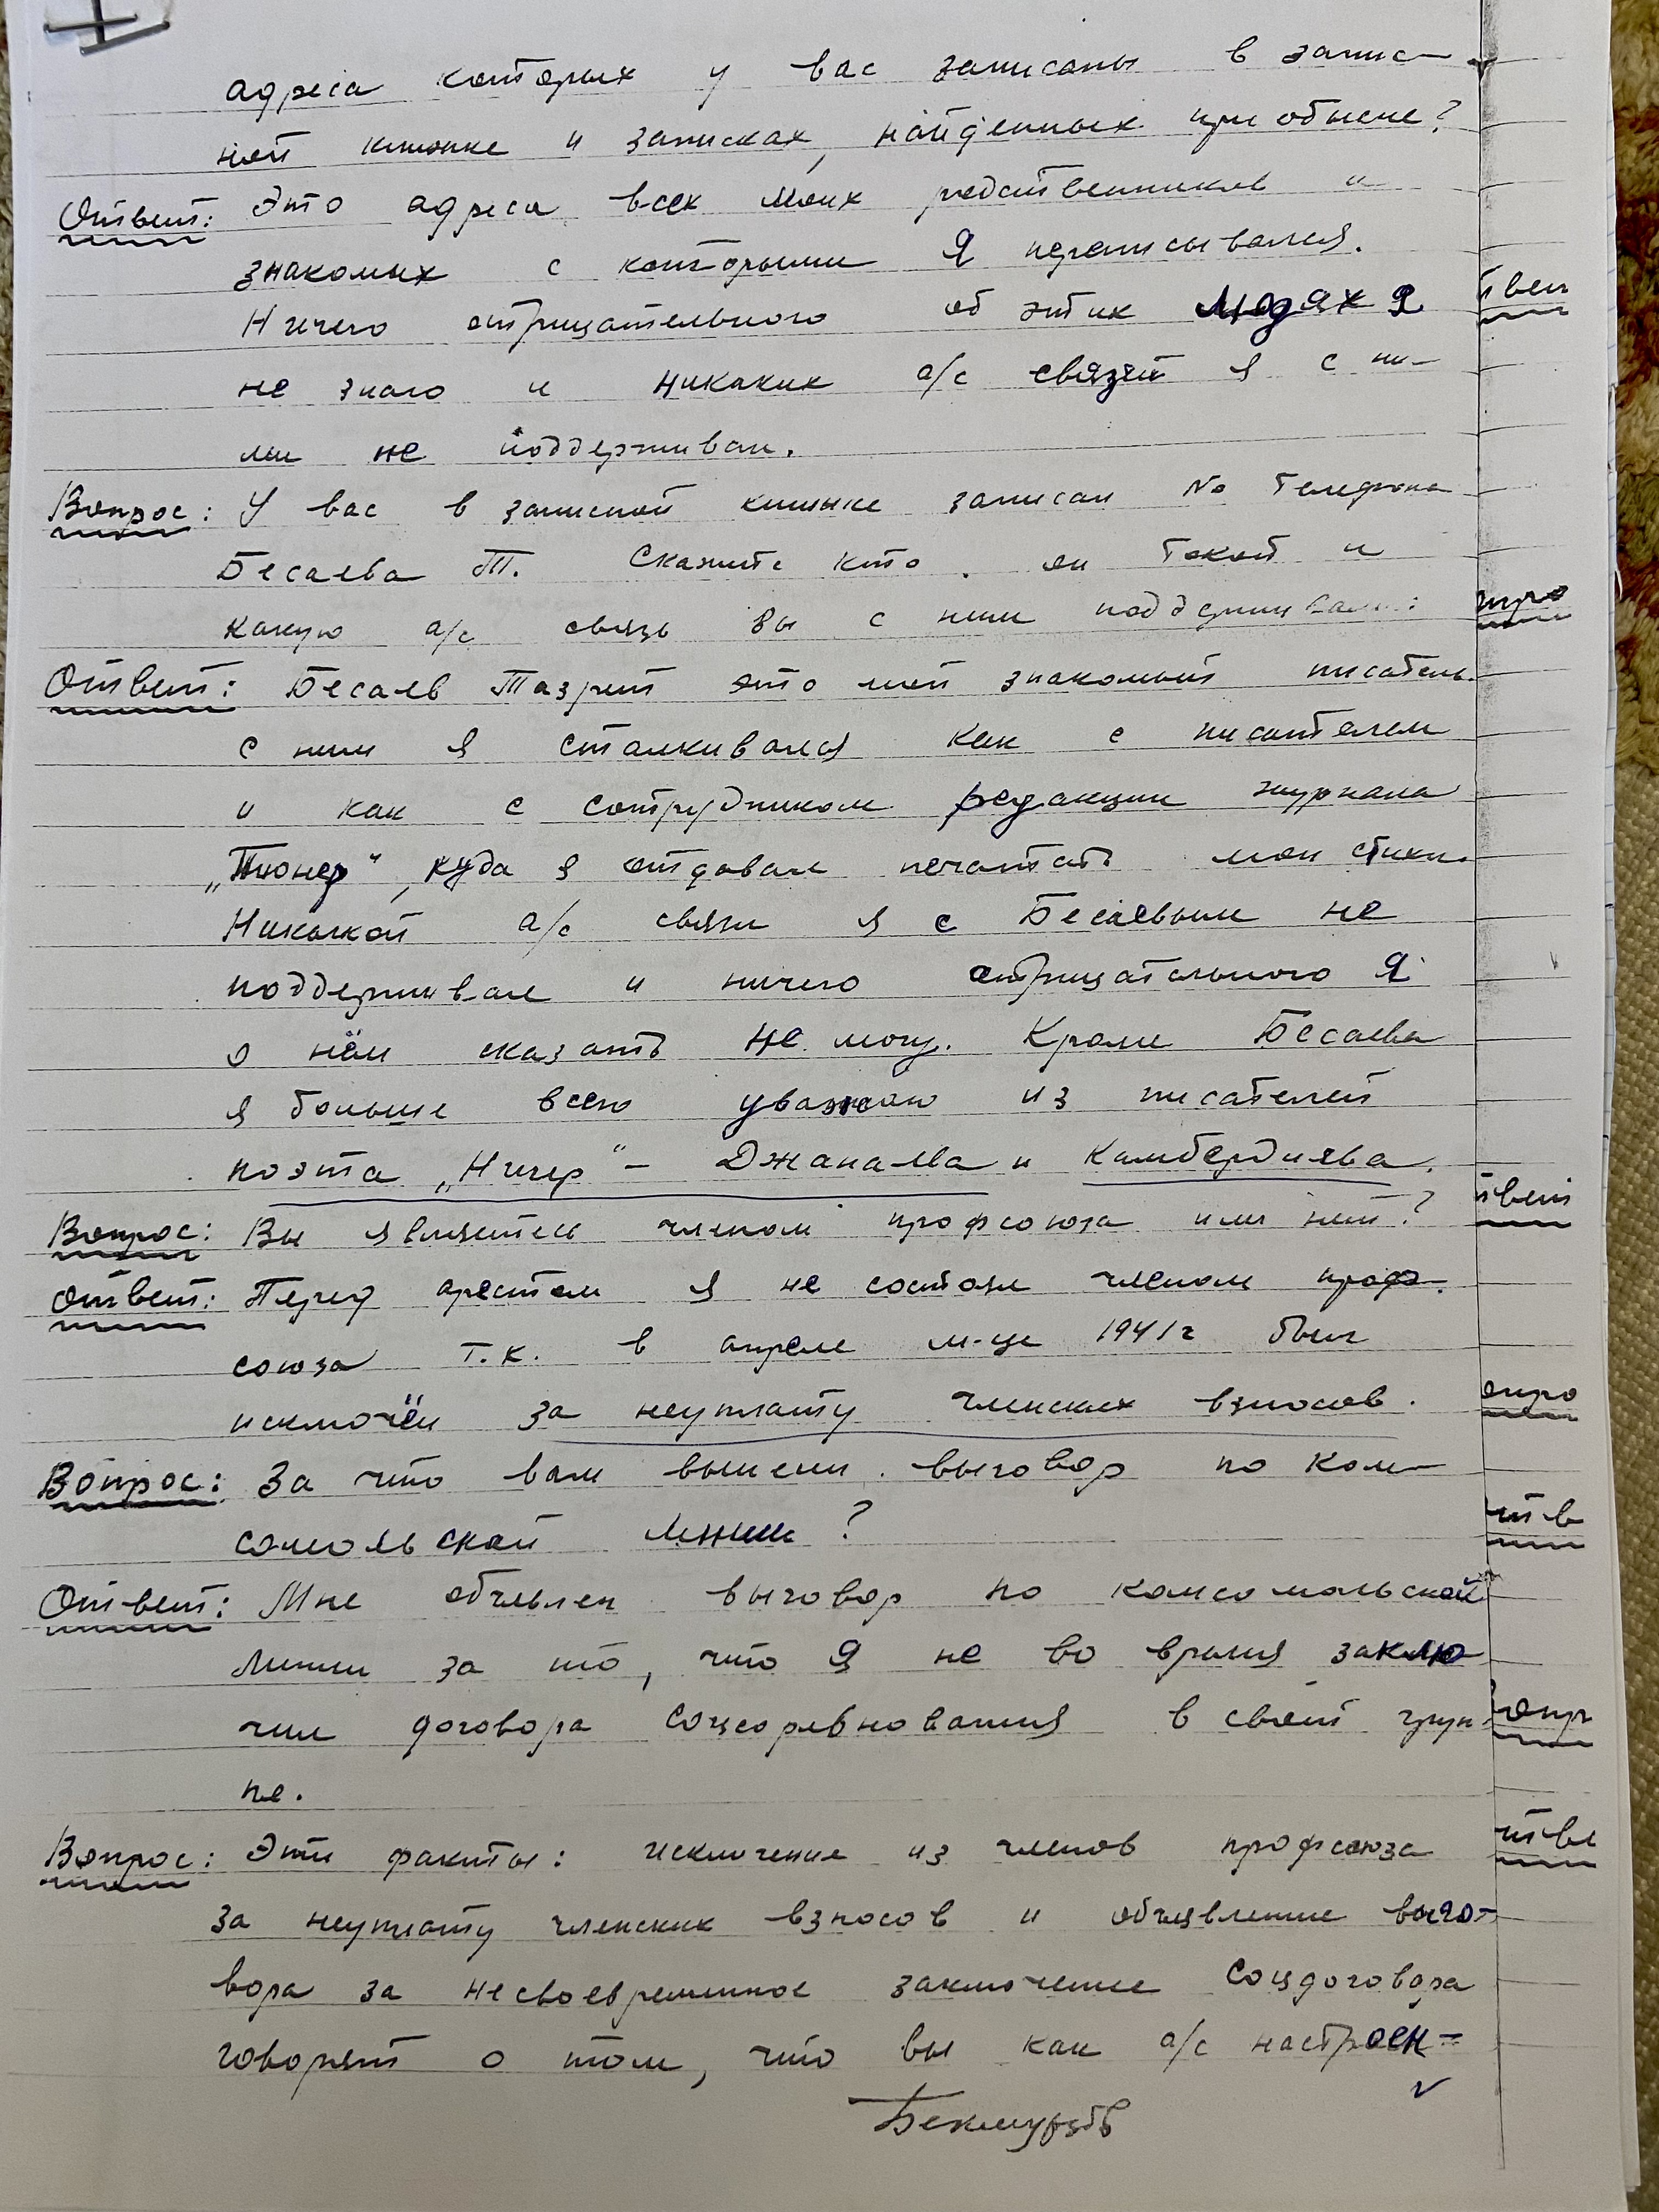 адреса которых у вас записаны в запис-
ной книжке и записках, найденных при обыске?
Ответ: Это адреса всех моих родственников и
знакомых с которыми я переписывался.
Ничего отрицательного об этих людях я
не знаю и никаких а/с связей я с ни-
ми не поддерживал.
Вопрос: У вас в записной книжке записан № телефона
Бесаева Т. Скажите кто он такой и
какую а/с связь вы с ним поддерживали:
Ответ: Бесаев Тазрет это мой знакомый писатель.
с ним я сталкивался как с писателем
и как с сотрудником редакции журнала
„Пионер“, куда я отдавал печатать мои стихи.
Никакой а/с связи я с Бесаевым не
поддерживал и ничего отрицательного я
о нём сказать не могу. Кроме Бесаева
я больше всего уважаю из писателей
поэта „Нигер“ – Джанаева и Камбердиева.
Вопрос: Вы являетесь членом профсоюза или нет?
Ответ: Перед арестом я не состоял членом проф-
союза т.к. в апреле м-це 1941 г был
исключён за неуплату членских взносов.
Вопрос: За что вам вынесен выговор по ком-
сомольской линии?
Ответ: Мне объявлен выговор по комсомольской
линии за то, что я не во время заклю
чил договора соцсоревнования в своей груп
пе.
Вопрос: Эти факты: исключение из членов профсоюза
за неуплату членских взносов и объявление выго-
вора за несвоевременное заключение соцдоговора
говорят о том, что вы как а/с настроен-
Бекмурзов